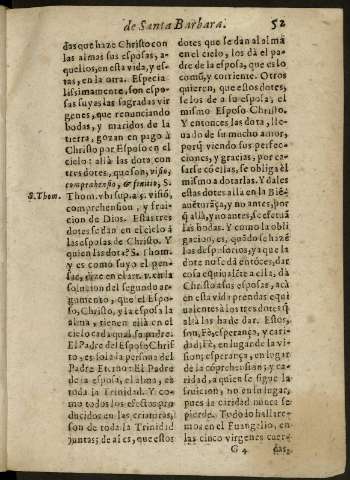 de Santa Barbara. 52
das que haze Christo con
las almas sus esposas, a-
quellos, en esta vida, y es-
tas, en la otra. Especia-
lissimamente, son espo-
sas suyas las sagradas vir
genes, que renunciando
bodas, y maridos de la
tierra, gozan en pago à
Christo por Esposo en el
cielo: allà las dota con
tres dotes, que son, visio,
comprehensio, & fruitio, S.
S. Thom.
Thom. vbi sup. a 5. visiõ,
comprehension, y frui-
cion de Dios. Estas tres
dotes se dan en el cielo à
las esposas de Christo. Y
quien las dota? S. Thom.
y es como suyo el pen-
sar, dize en el art. v. en la
solucion del segundo ar-
gumento, que el Espo-
so, Christo, y la esposa la
alma, tienen allà en el
cielo cada qual su padre.
El Padre del Esposo Chris
to, es sola la persona del
Padre Eterno: El Padre
de la esposa, el alma, es
toda la Trinidad. Y co-
mo todos los efectos pro
ducidos en las criaturas,
son de toda la Trinidad
juntas; de aì es, que estos
dotes que se dan al almà
en el cielo, los dà el pa-
dre de la esposa, que es lo
comũ, y corriente. Otros
quieren, que estos dotes,
se los de a su esposa; el
mismo Esposo Christo.
Y entonces las dota, lle-
uado de su mucho amor,
porq̃ viendo sus perfec-
ciones, y gracias, por ca-
sarse cõ ellas, se obliga èl
mismo a dotarlas. Y dales
estas dotes allà en la Biẽ-
auẽturãça, y no antes, por
q̃ allà, y no antes, se efetuã
las bodas. Y como la obli
gacion, es, quãdo se hazẽ
los desposorios, ya que la
dote no se dà entõces, dar
cosa equiualẽte a ella; dà
Christo a sus esposas, acà
en esta vida prendas equi
ualentes à los tres dotes q̃
allà las ha de dar. Estos,
son, Fè, esperança, y cari-
dad; Fè, en lugar de la vi-
sion; esperança, en lugar
de la cõprehension; y ca-
ridad, a quien se sigue la
fruicion, no en su lugar,
pues la caridad nunca se
pierde. Todo lo hallare-
mos en el Euangelio, en
las cinco virgines cuer-
G 4 das,